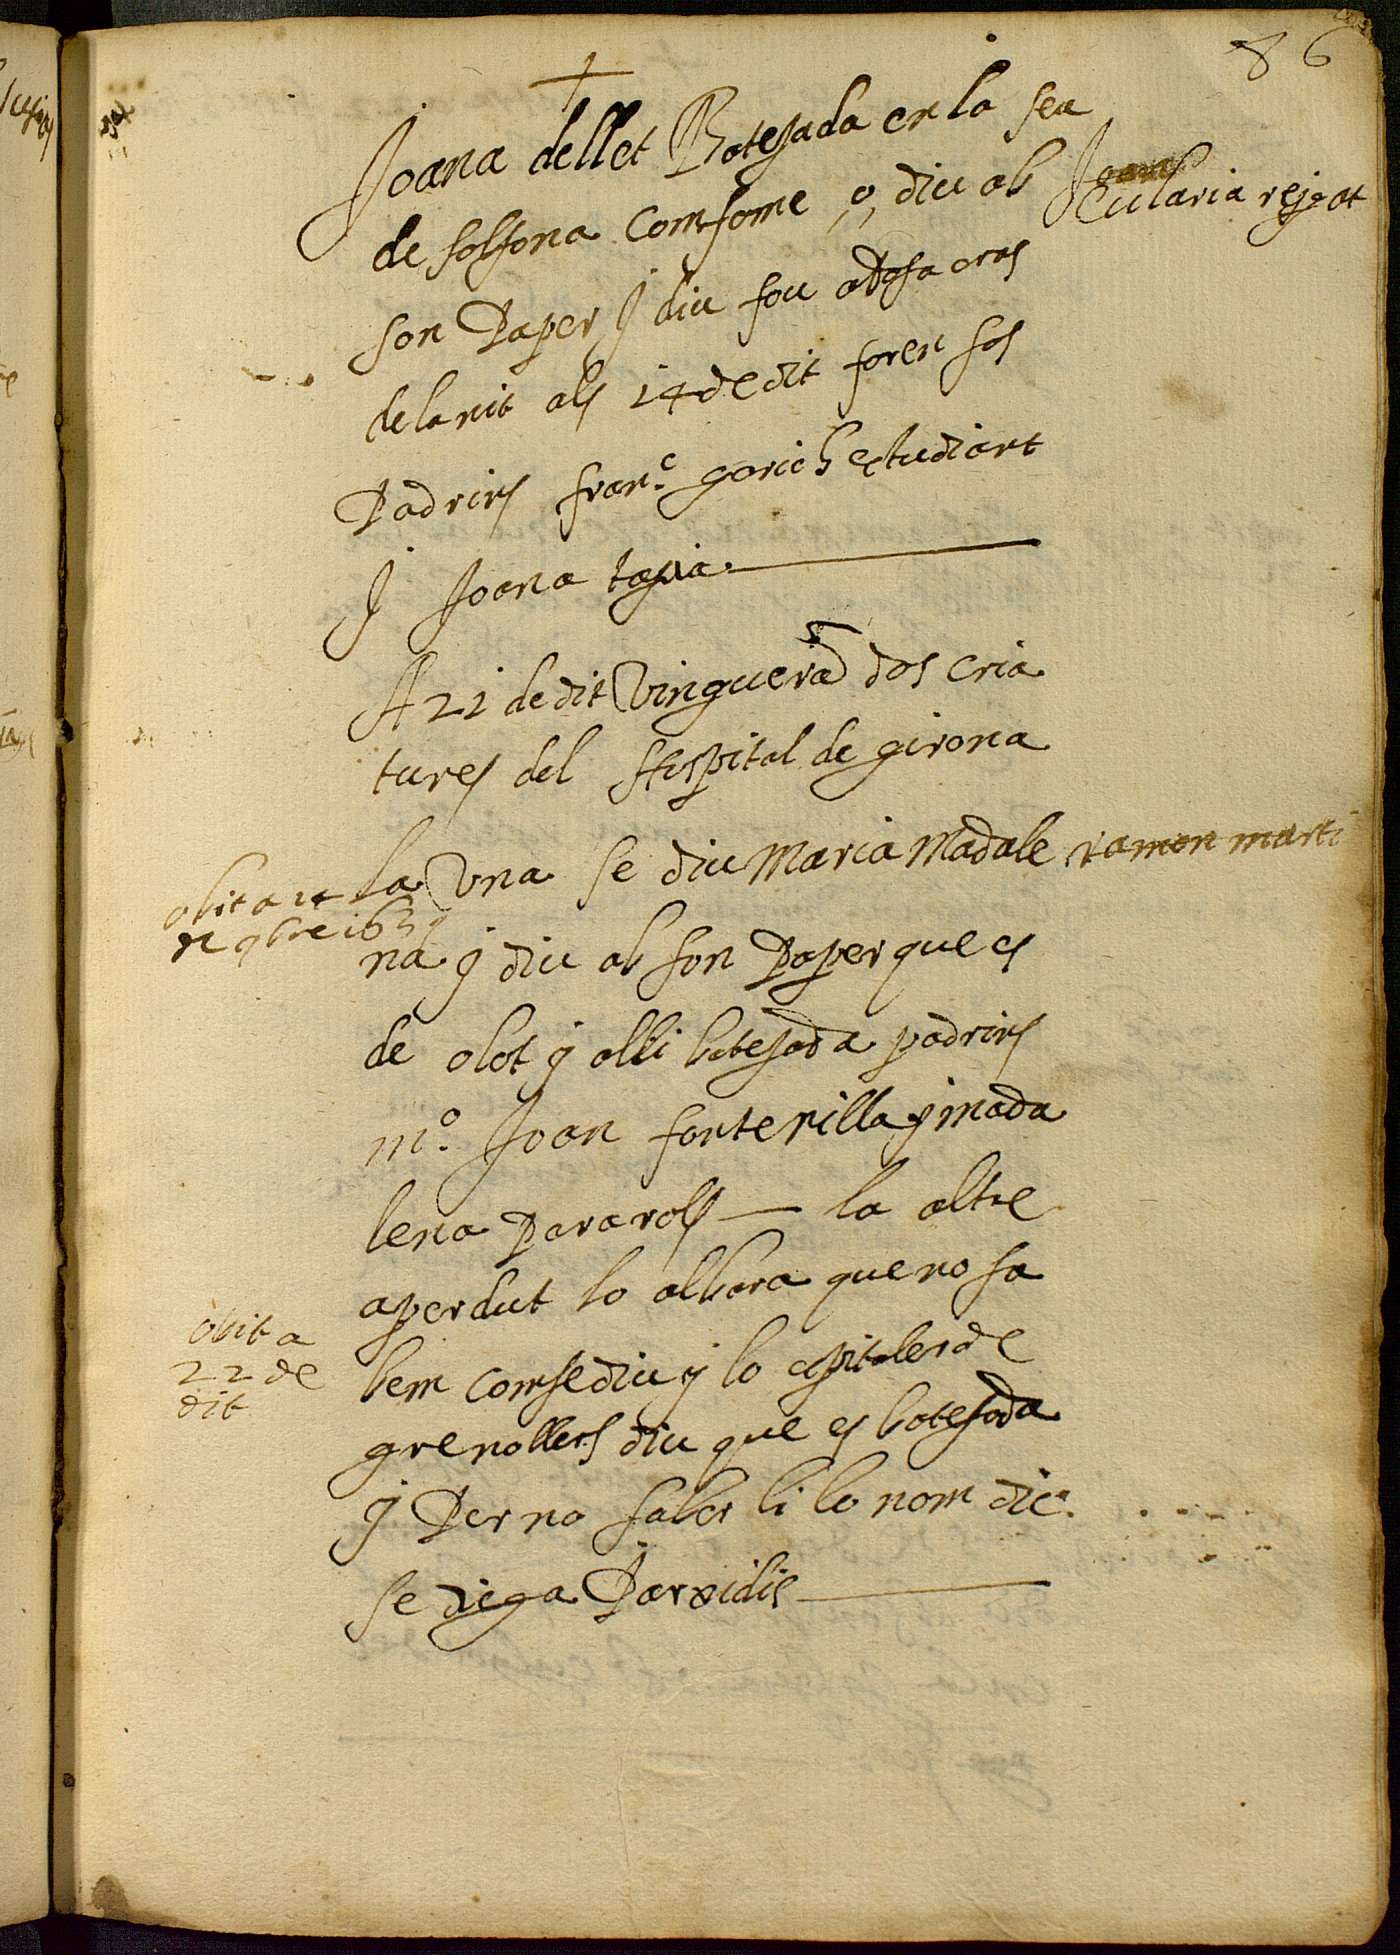 86
Joana dellet Batejada en la seu
de solsona Comsome o, diu ab
Eularia rejeat
son Paper y diu fou a sas oras
de la nit als 14 de dit foren sos
Padrins fran.c garich estudiant
y Joana tapia
A 21 de dit Vingueran dos cria
tures del Hospital de girona
la una se diu Maria Madale
ramon marti
obit a 14
na y diu ab son Paper que es
de olot y alli batejada padrins
m.o Joan fontenilla y mada
lena Pararols — la altre
a perdut lo albara que no sa
obit a
22 de
dit
bem com se diu y lo espitaler de
grenollers diu que es batejada
y Per no saber li lo nom die.
se diega Parxidis